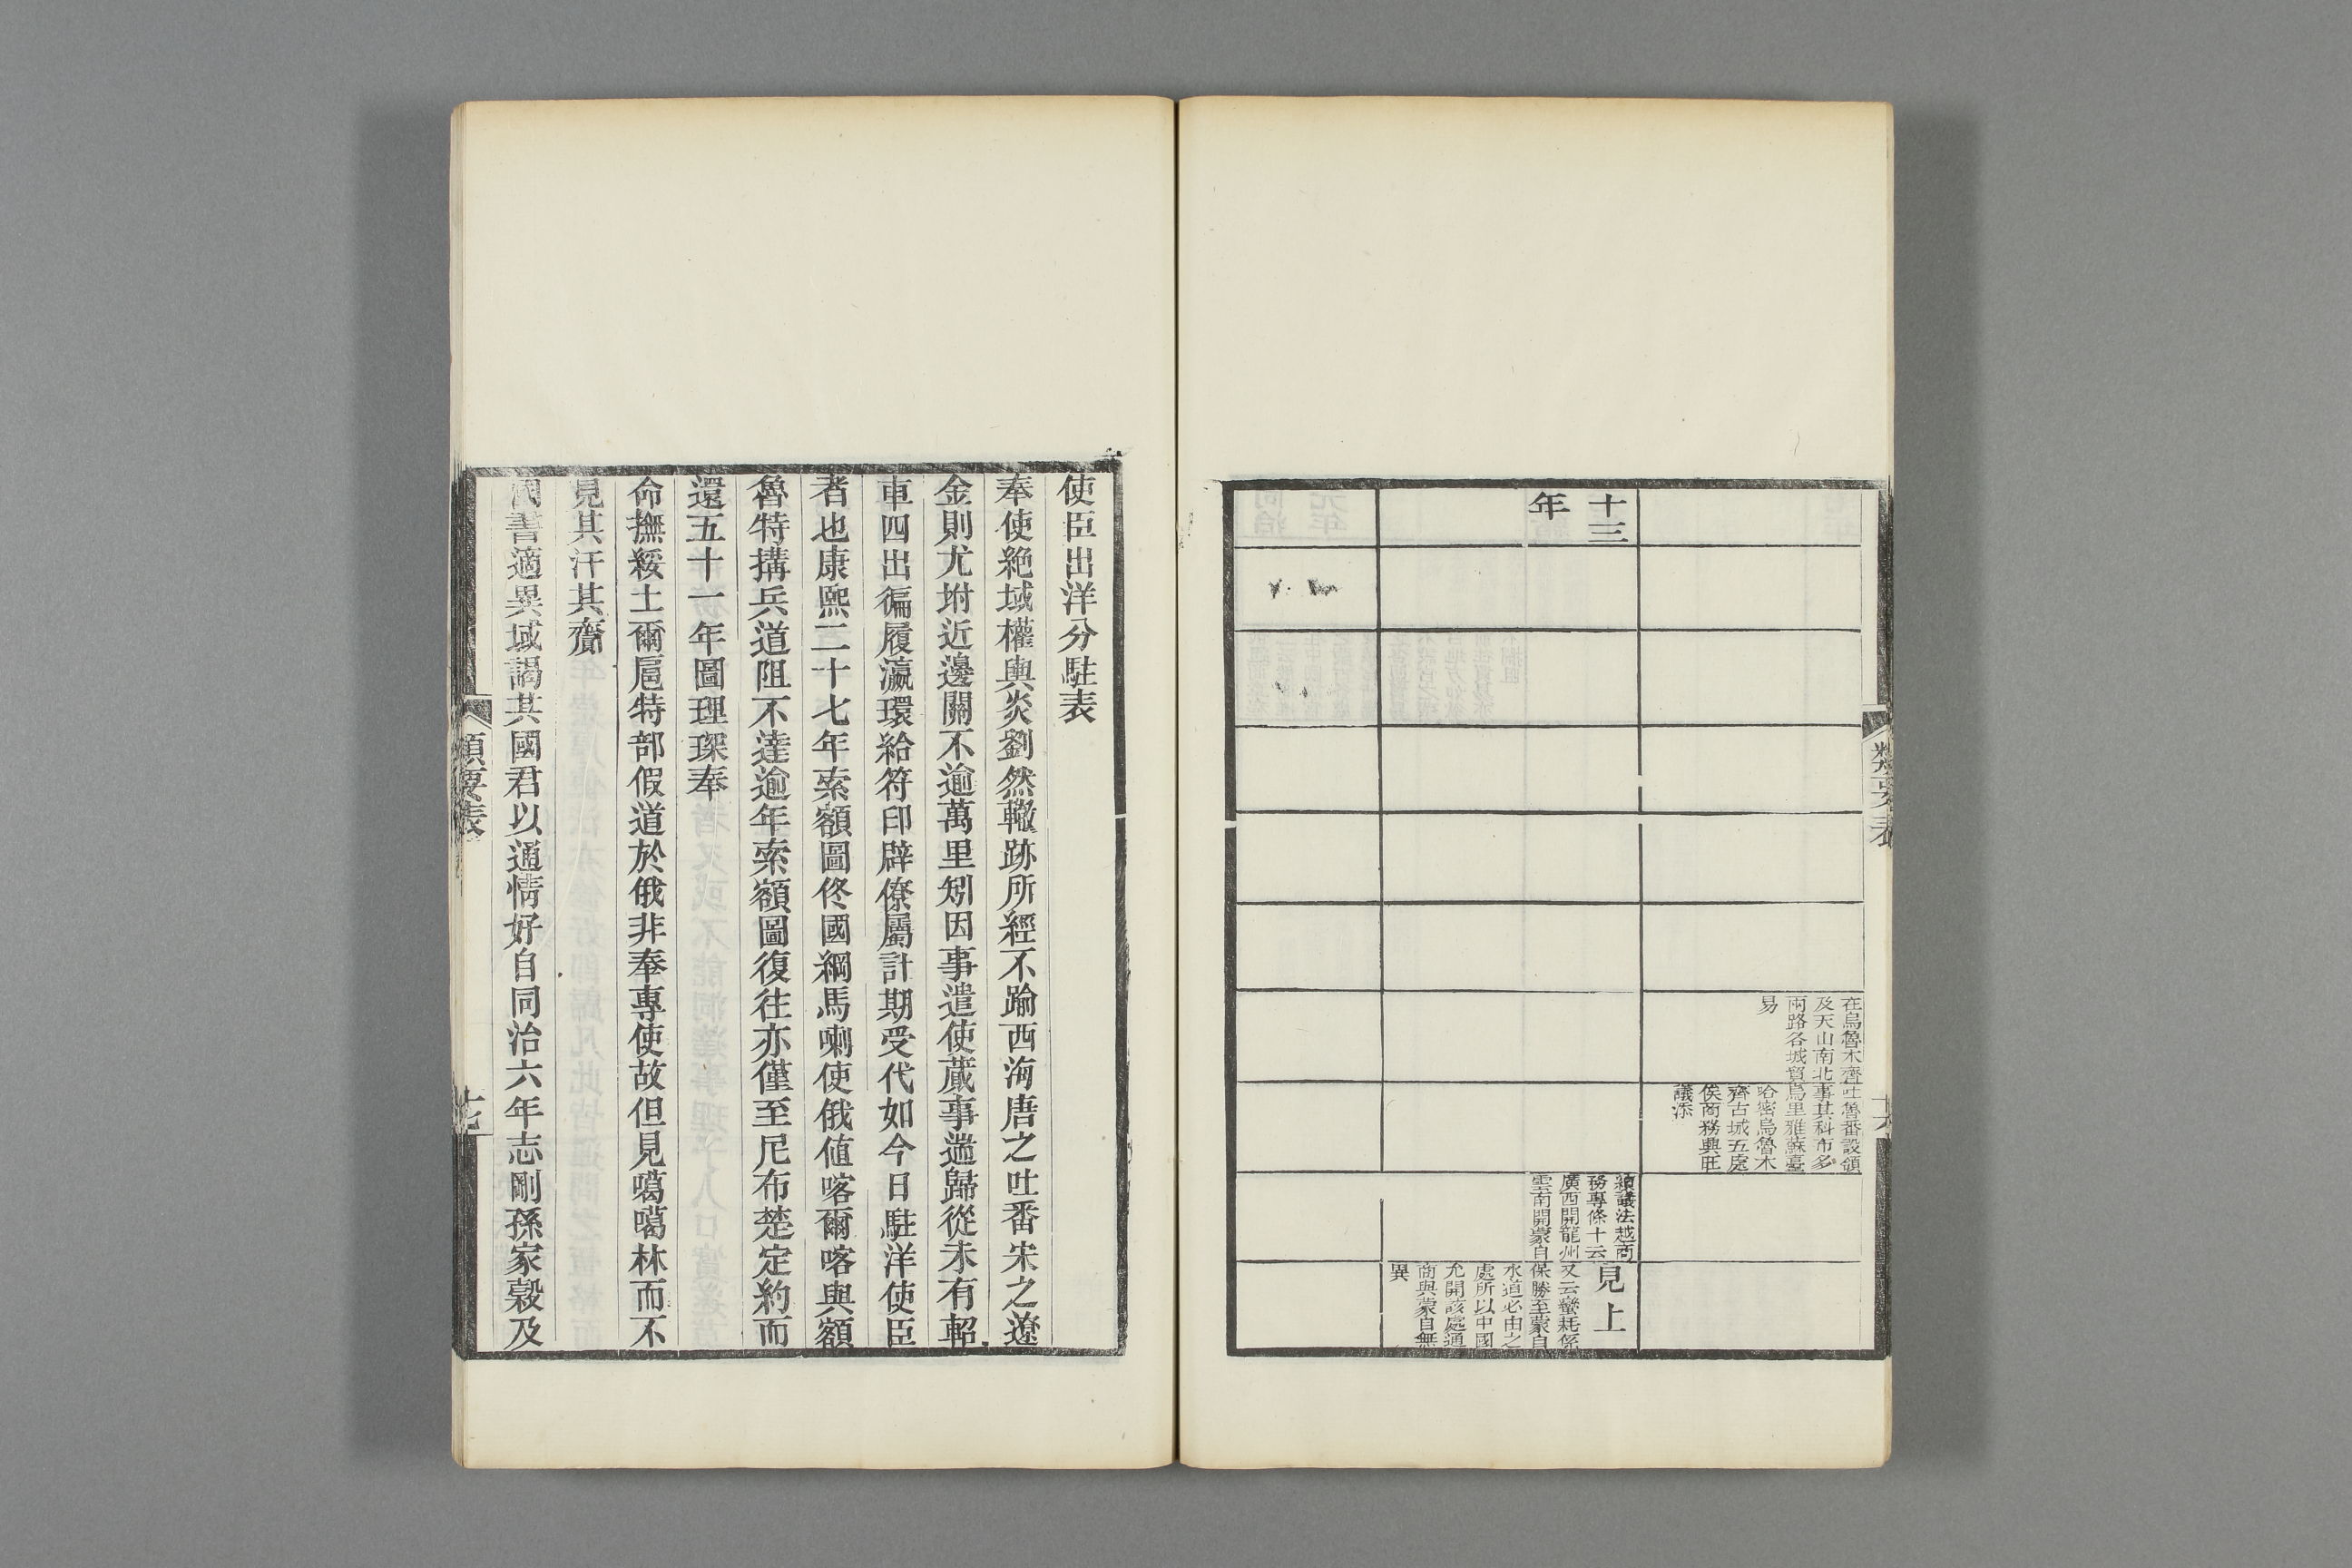 類要表
十六
在烏魯木齊
及天山南北
兩路各城貿
易
吐魯番設領
事其科布多
烏里雅蘇臺
哈密烏魯木
齊古城五處
俟商務興旺
議添
十三
年
續議法越商
務專條十云
廣西開龍州
雲南開蒙自
見上
又云蠻耗係
保勝至蒙自
水道必由之
處所以中國
允開該處通
商與蒙自無
異
使臣出洋分駐表
奉使絶域權輿炎劉然轍跡所經不踰西海唐之吐番宋之遼
金則尤坿近邊關不逾萬里矧因事遣使蕆事遄歸從未有軺
車四出徧履瀛環給符印辟僚屬計期受代如今日駐洋使臣
者也康熙二十七年索額圖佟國綱馬喇使俄値喀爾喀與額
魯特搆兵道阻不達逾年索額圖復往亦僅至尼布楚定約而
還五十一年圖理琛奉
命撫綏土爾扈特部假道於俄非奉專使故但見噶噶林而不
見其汗其齎
國書適異域謁其國君以通情好自同治六年志剛孫家榖及
類要表
十七